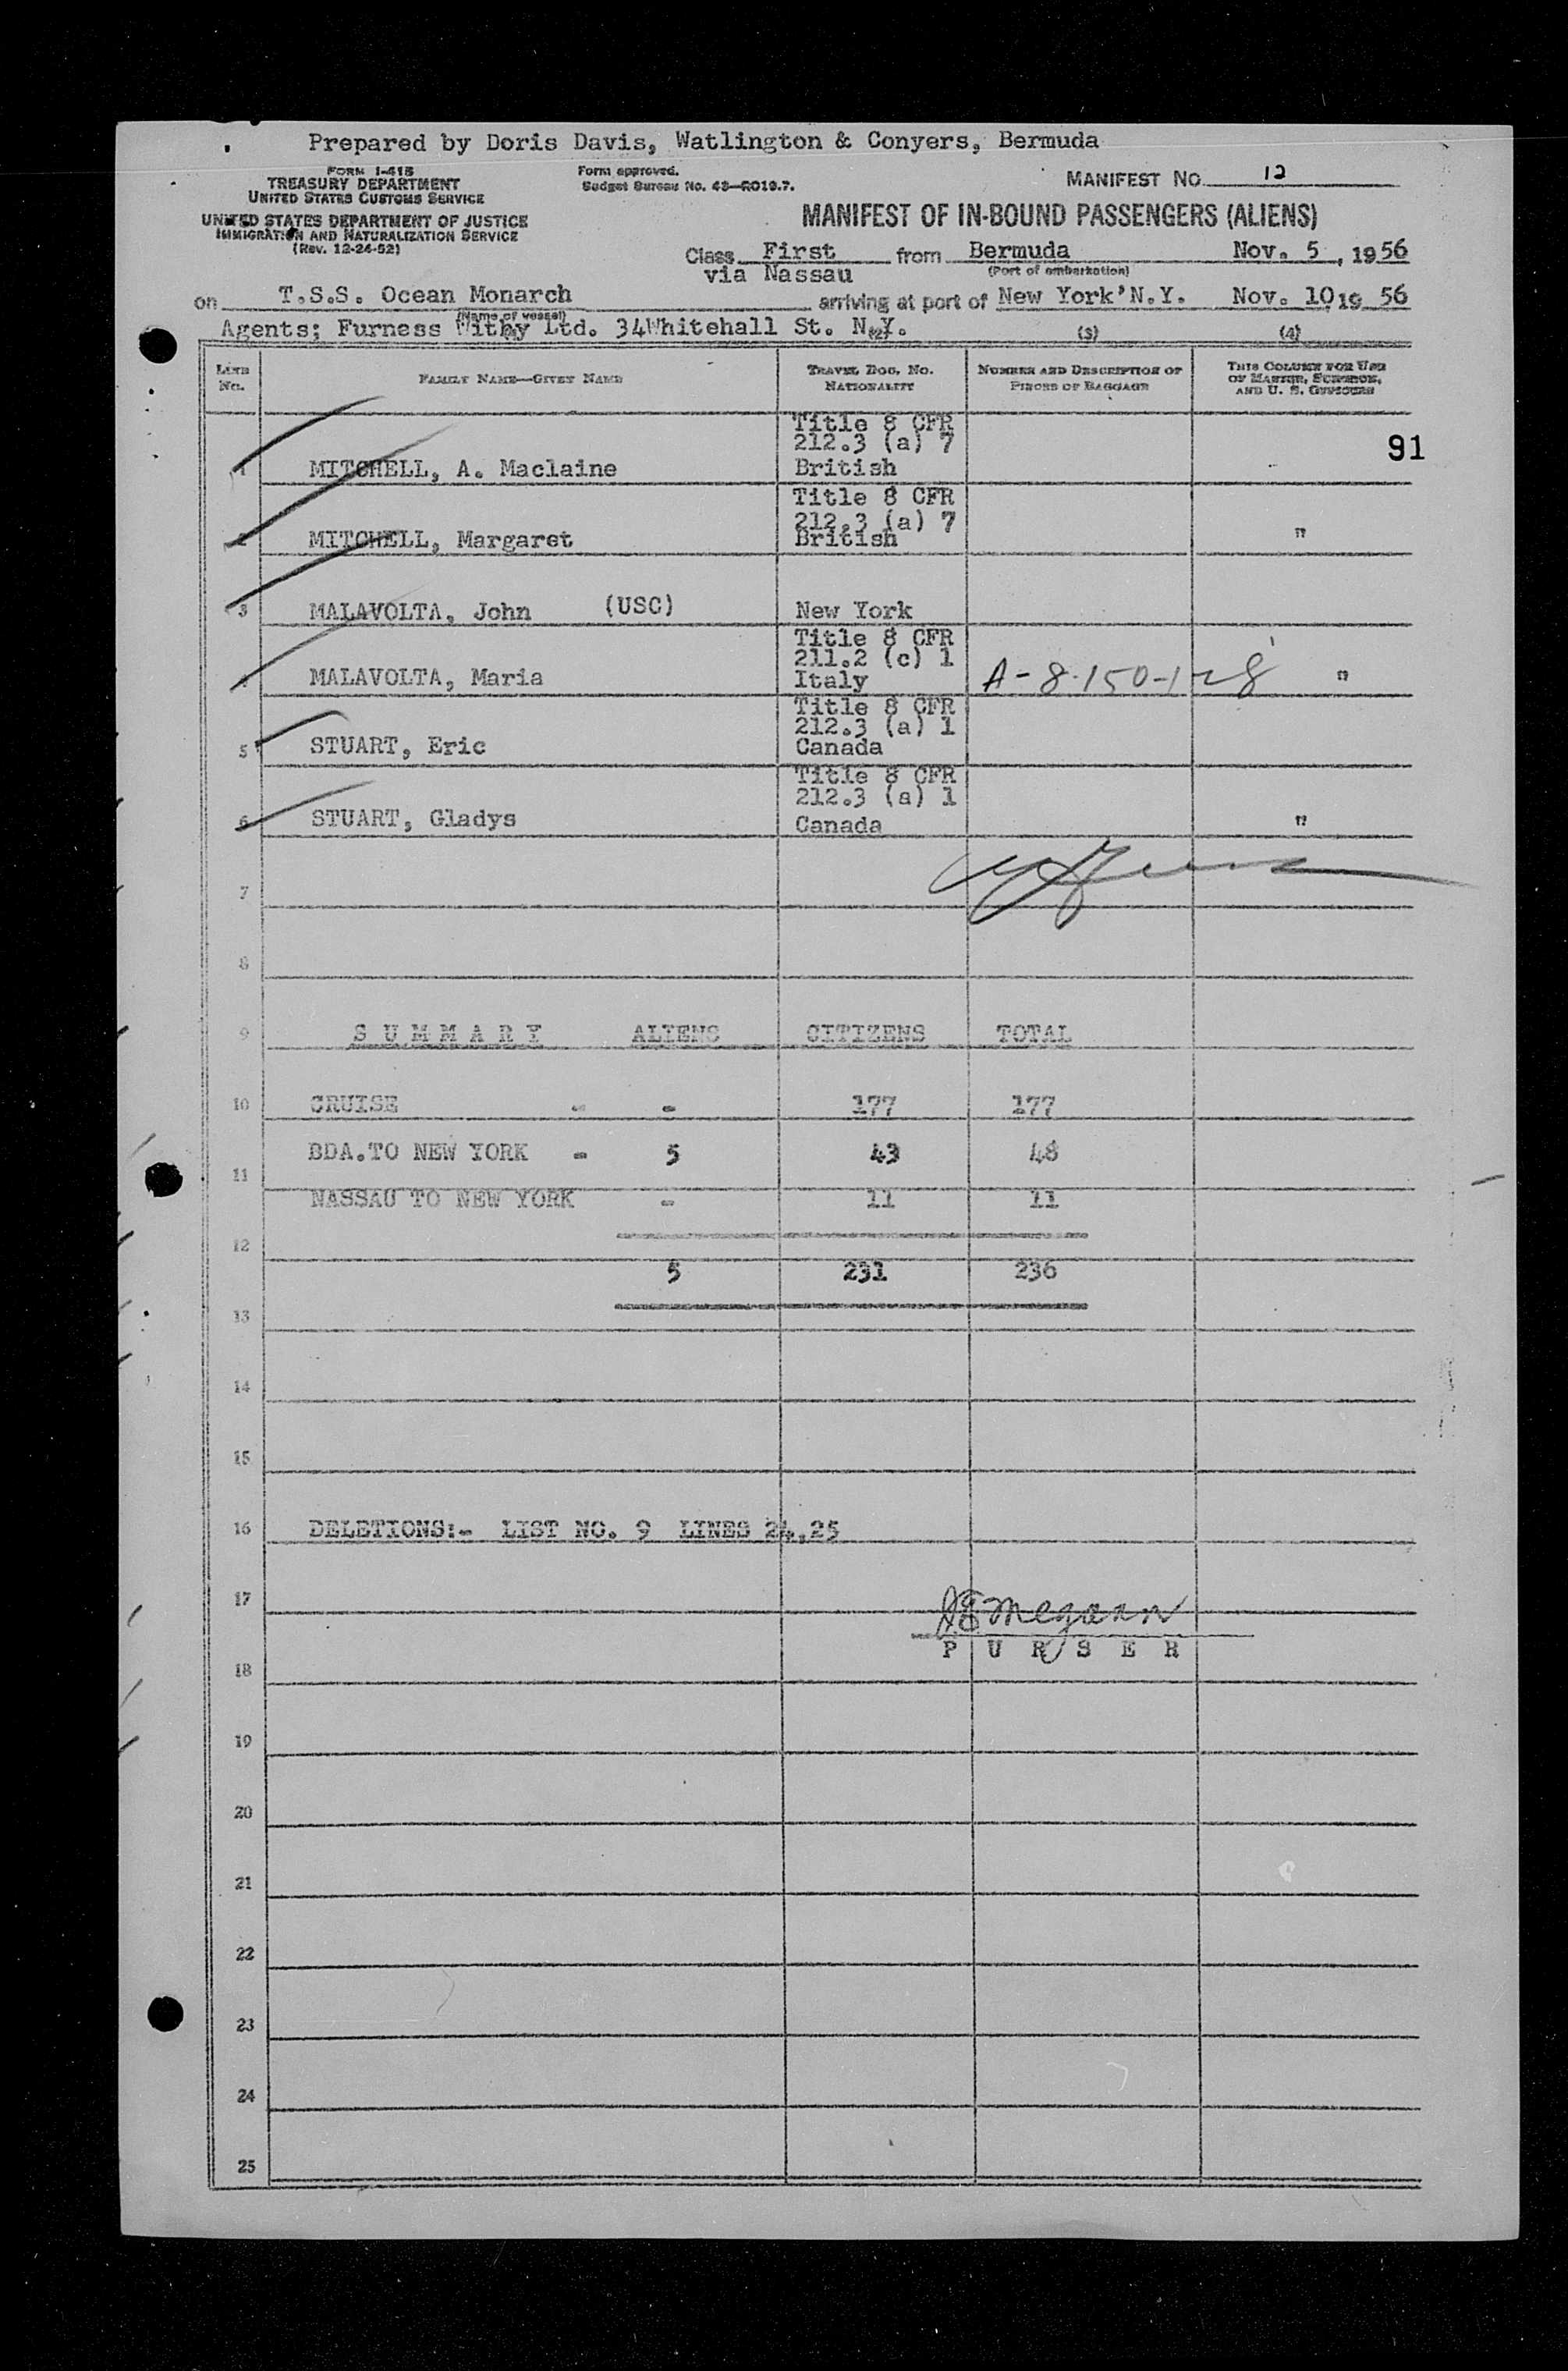 Prepared by Doris Davis, Watlington & Conyers, Bermuda
FORM I-418
TREASURY DEPARTMENT
UNITED STATES CUSTOMS SERVICE
UNITED STATES DEPARTMENT OF JUSTICE
IMMIGRATION AND NATURALIZATION SERVICE
(Rev. 12-24-52)
Form approved.
Budget Bureau No. 43—R019.7.
MANIFEST NO. 12
MANIFEST OF IN-BOUND PASSENGERS (ALIENS)
Class First from Bermuda Nov. 5, 1956
via Nassau (Port of embarkation)
on T.S.S. Ocean Monarch arriving at port of New York'N.Y. Nov. 10 19 56
(Name of vessel)
Agents; Furness Withy Ltd. 34Whitehall St. N.Y.
(2) (3) (4)
LINE No. FAMILY NAME—GIVEN NAME TRAVEL DOC. NO. NATIONALITY NUMBER AND DESCRIPTION OF PIECES OF BAGGAGE THIS COLUMN FOR USE OF MASTER, SURGEON, AND U. S. OFFICERS
Title 8 CFR
212.3 (a) 7 91
1 MITCHELL, A. Maclaine British
Title 8 CFR
212.3 (a) 7
2 MITCHELL, Margaret British "
3 MALAVOLTA, John (USC) New York
Title 8 CFR
211.2 (c) 1
4 MALAVOLTA, Maria Italy A-8-150-128 "
Title 8 CFR
212.3 (a) 1
5 STUART, Eric Canada
Title 8 CFR
212.3 (a) 1
6 STUART, Gladys Canada "
7
8
9 SUMMARY ALIENS CITIZENS TOTAL
10 CRUISE - - 177 177
BDA.TO NEW YORK - 5 43 48
11
NASSAU TO NEW YORK - 11 11
12
5 231 236
13
14
15
16 DELETIONS:- LIST NO. 9 LINES 24,25
17
PURSER
18
19
20
21
22
23
24
25